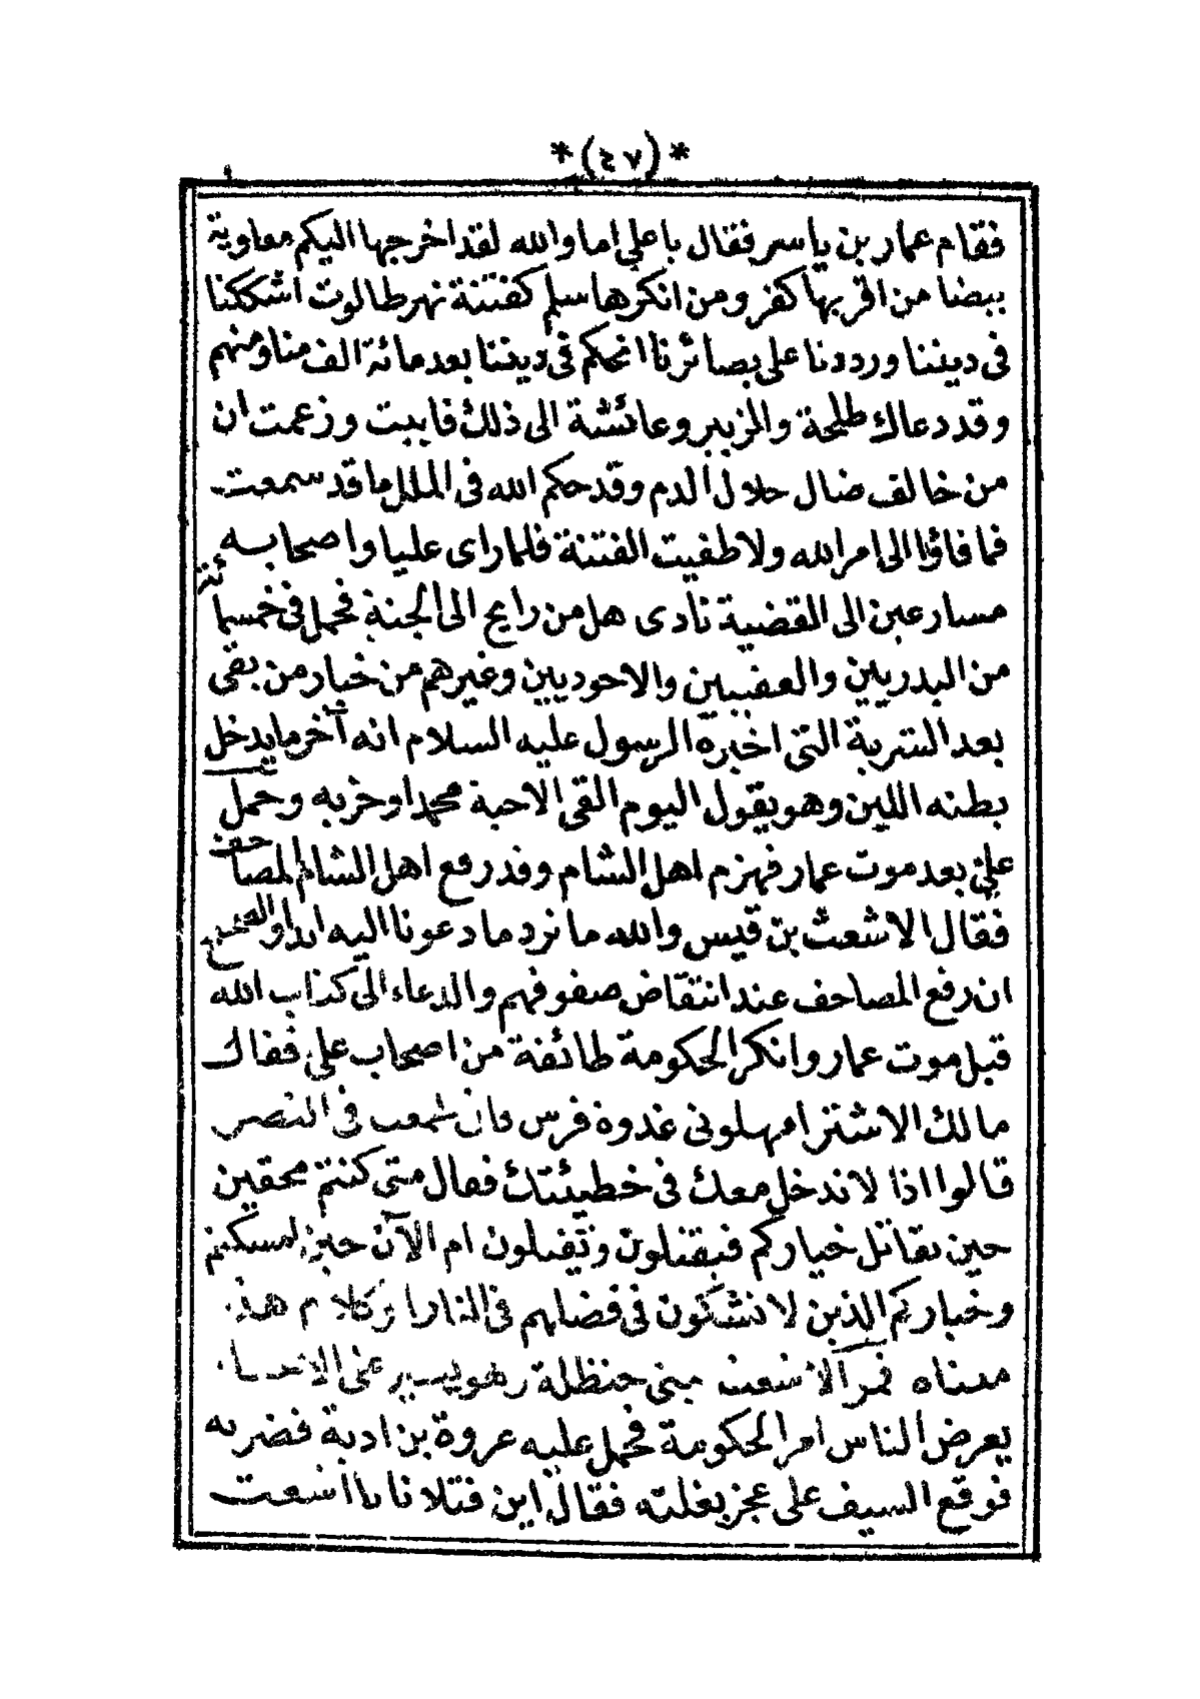 *(٤٧)*
فقام عمار بن ياسر فقال ياعلي اما والله لقد اخرجها اليكم معاوية
بيضا من اقر بها كفر ومن انكرها سلم كفتنة نهر طالوت اشككنا
في ديننا ورددنا على بصائرنا انحكم في ديننا بعد مائة الف منا ومنهم
وقد دعاك طلحة والزبير وعائشة الى ذلك فابيت وزعمت ان
من خالف ضال حلال الدم وقد حكم الله في الملل ما قد سمعت
فما فاؤا الى امر الله ولا طفيت الفتنة فلما راى عليا واصحابه
مسارعين الى القضية نادى هل من رايح الى الجنة فحمل في خمسمائة
من البدريين والعقبيين والاحوديين وغيرهم من خيار من بقى
بعد الشربة التى اخبره الرسول عليه السلام انه آخر ما يدخل
بطنه اللبن وهو يقول اليوم القى الاحبة محمدا وحزبه وحمل
علي بعد موت عمار فهزم اهل الشام وقد رفع اهل الشام المصاحف
فقال الاشعث بن قيس والله ما نرد ما دعونا اليه ابدا والصحيح
ان رفع المصاحف عند انتقاض صفوفهم والدعاء الى كتاب الله
قبل موت عمار وانكر الحكومة طائفة من اصحاب علي فقال
مالك الاشتر امهلوني غدوة فرس فان طمعت في النصر
قالوا اذا لا ندخل معك في خطيئتك فقال متى كنتم محقين
حين نقاتل خياركم فيقتلون وتقتلون ام الآن حين امسكتم
وخياركم الذين لا تشكون في فضلهم في النار اتركلام هذ
معناه فمر الاشعث ببني حنظلة وهو يسير على الاحياء
يعرض الناس امر الحكومة فحمل عليه عروة بن ادية فضربه
فوقع السيف على عجز بغلته فقال اين قتلانا يا اشعث